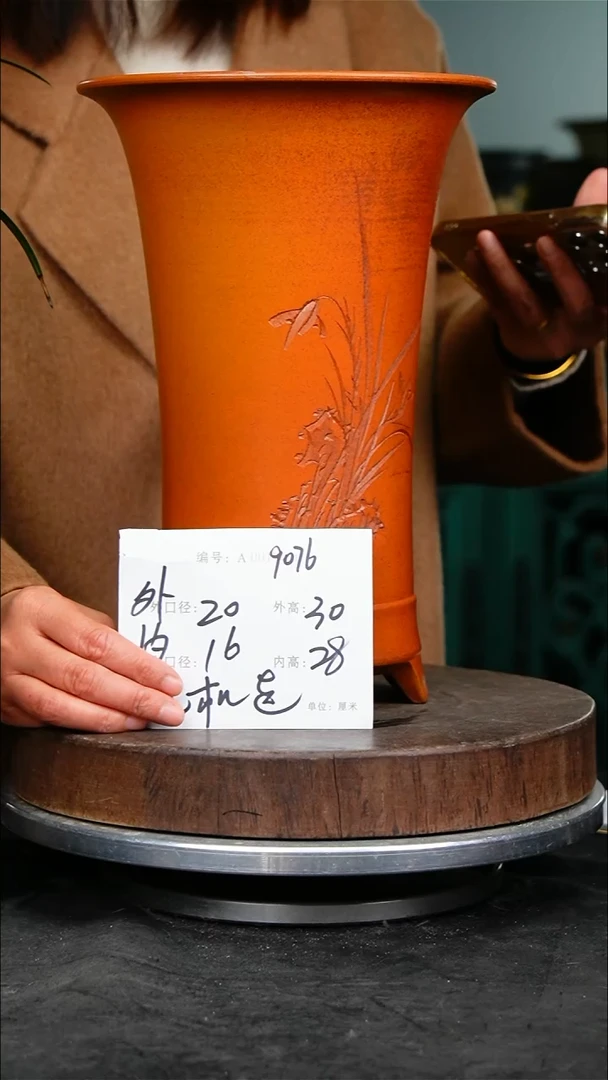 编号: A 9076
外 外口径: 20 外高: 30
内 口径: 16 内高: 28
单位: 厘米